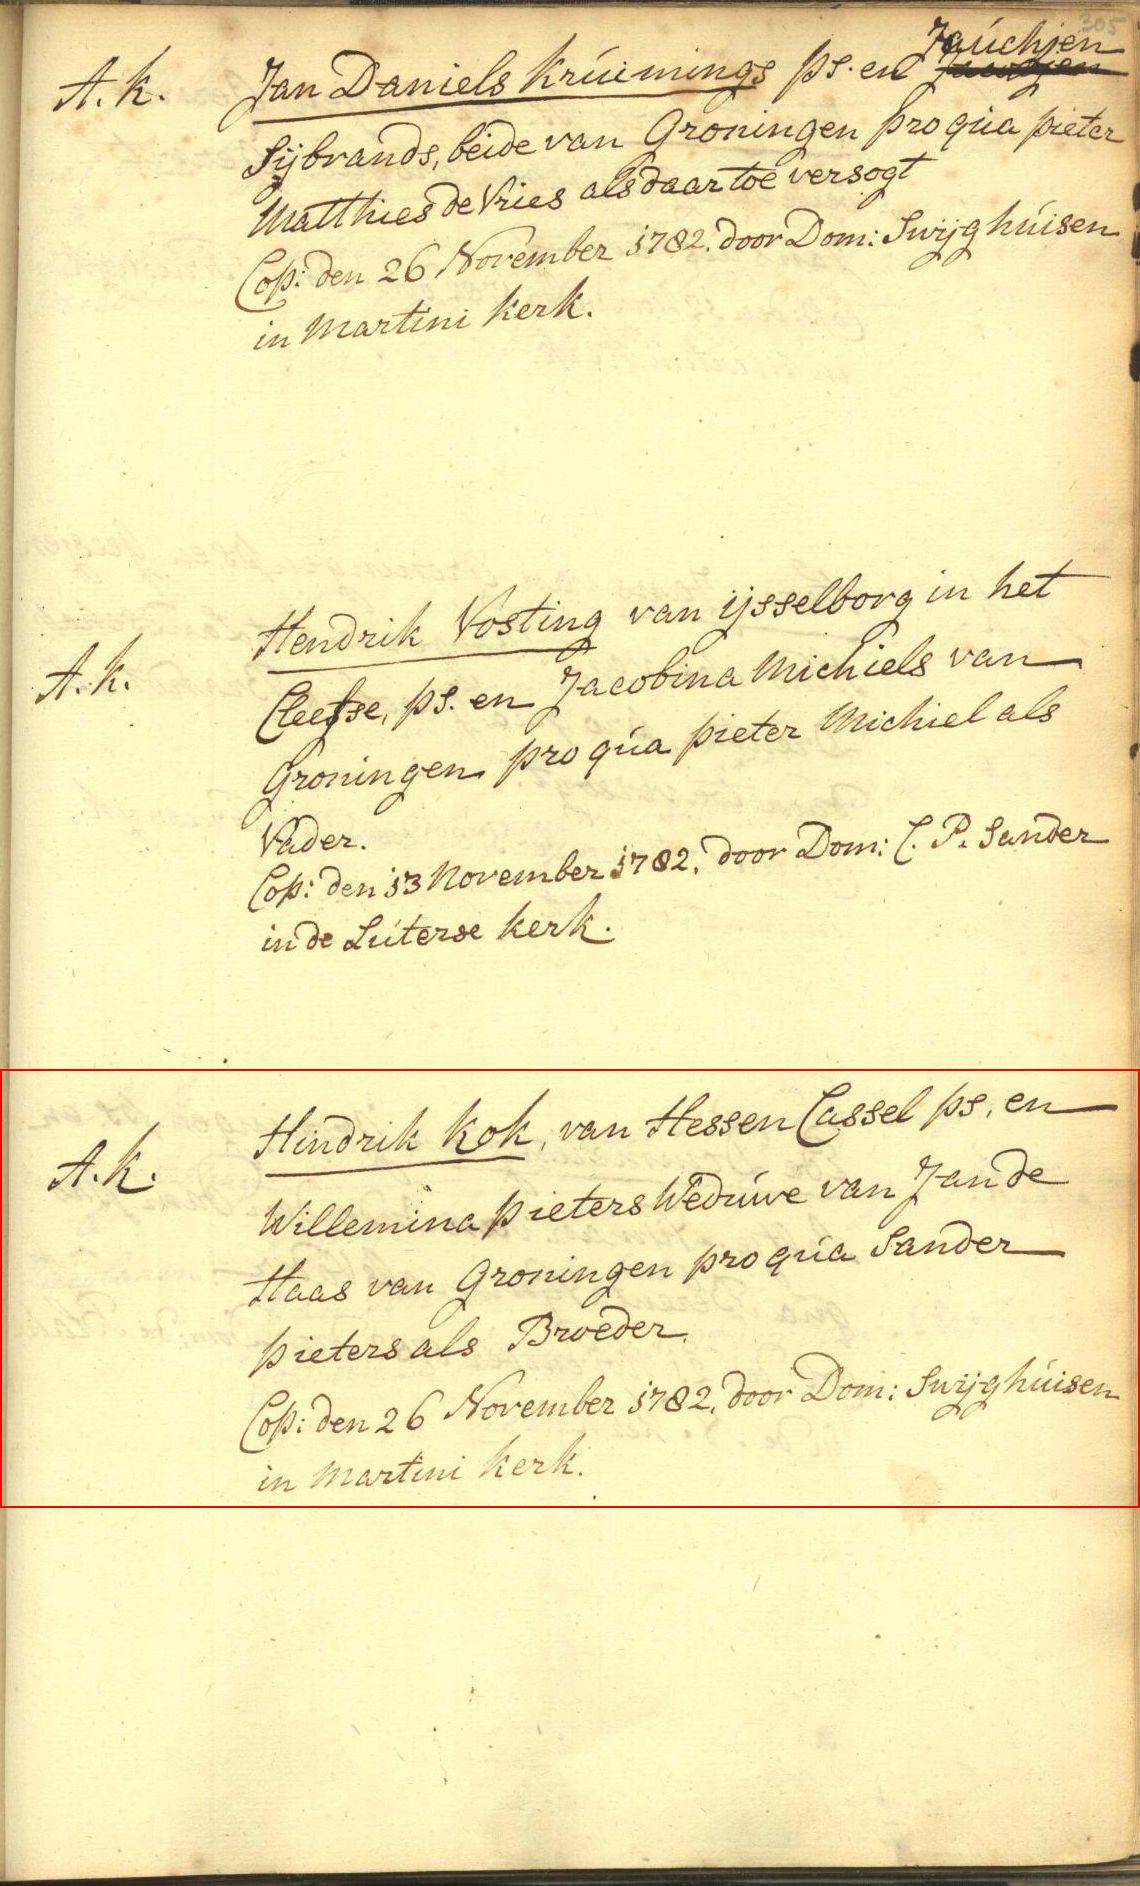 305
Jaúchjen
A. k. Jan Daniels Krúimings ps. en
Sijbrands, beide van Groningen pro qúa pieter
Matthies de Vries als daar toe versogt
Cop: den 26 November 1782. door Dom: Swijghúisen
in Martini kerk.
Hendrik Vosting van ijsselborg in het
A. k.
Cleefse, ps. en Jacobina Michiels van
Groningen pro qúa pieter Michiel als
Vader.
Cop: den 13 November 1782. door Dom: C. P. Sander
in de Lúterse kerk.
Hindrik Kok, van Hessen Cassel ps. en
A. k.
Willemina pieters Wedúwe van Jan de
Haas van Groningen pro qúa Sander
pieters als Broeder.
Cop: den 26 November 1782. door Dom: Swijghúisen
in Martini kerk.